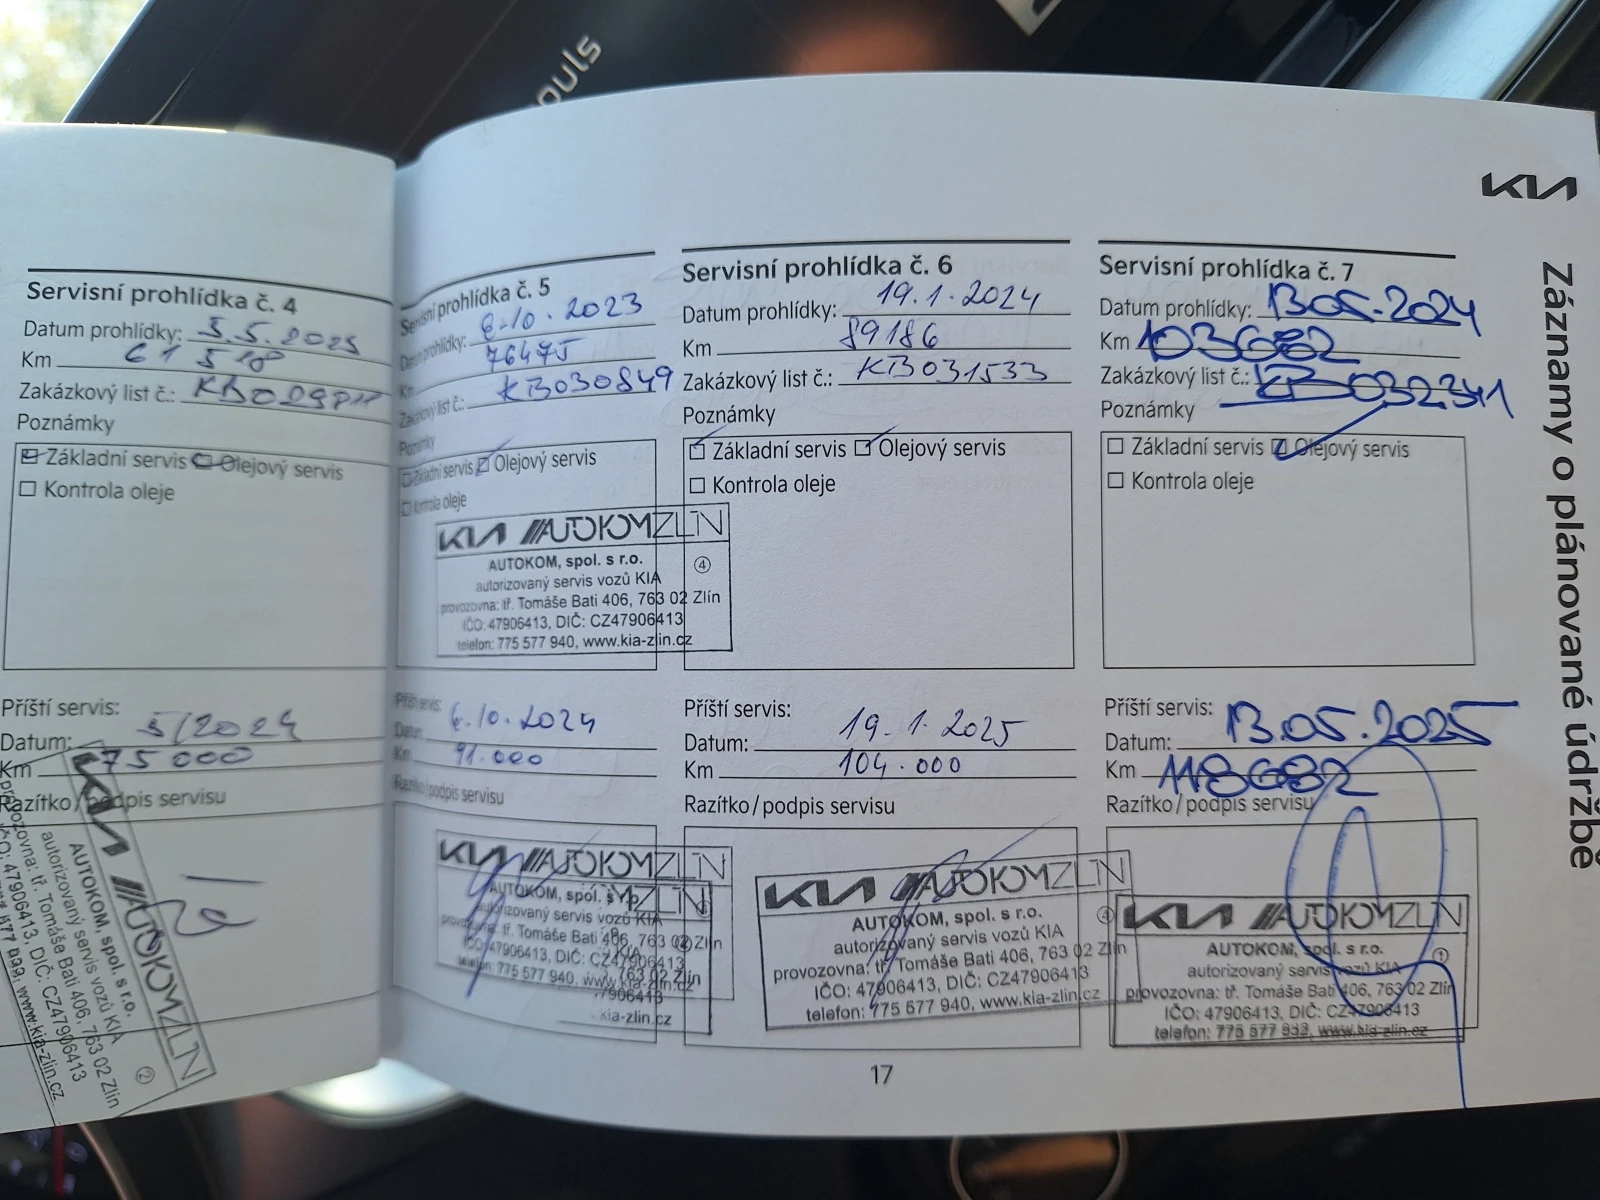 ouls
KIA
Záznamy o plánované údržbě
Servisní prohlídka č. 4
Datum prohlídky: 5.5.2023
Km 61 518
Zakázkový list č.:
Poznámky
Základní servis Olejový servis
Kontrola oleje
Příští servis:
Datum: 5/2024
Km 75 000
Razítko/podpis servisu
KIA AUTOKOMZLÍN
AUTOKOM, spol. s r.o.
autorizovaný servis vozů KIA
provozovna: tř. Tomáše Bati 406, 763 02 Zlín
IČO: 47906413, DIČ: CZ47906413
www.kia-zlin.cz
2
Servisní prohlídka č. 5
Datum prohlídky: 6.10.2023
Km 76475
Zakázkový list č.: KB030849
Poznámky
Základní servis Olejový servis
Kontrola oleje
KIA AUTOKOMZLÍN
AUTOKOM, spol. s r.o.
4
autorizovaný servis vozů KIA
provozovna: tř. Tomáše Bati 406, 763 02 Zlín
IČO: 47906413, DIČ: CZ47906413
telefon: 775 577 940, www.kia-zlin.cz
Příští servis:
Datum: 6.10.2024
Km 91.000
Razítko/podpis servisu
KIA AUTOKOMZLÍN
AUTOKOM, spol.
autorizovaný servis vozů KIA
provozovna: tř. Tomáše Bati 406, 763 02 Zlín
IČO: 47906413, DIČ: CZ47906413
telefon: 775 577 940, www.kia-zlin.cz
763 02 Zlín
47906413
kia-zlin.cz
Servisní prohlídka č. 6
Datum prohlídky: 19.1.2024
Km 89186
Zakázkový list č.: KB031533
Poznámky
Základní servis Olejový servis
Kontrola oleje
Příští servis:
Datum: 19.1.2025
Km 104.000
Razítko/podpis servisu
KIA AUTOKOMZLÍN
AUTOKOM, spol. s r.o.
4
autorizovaný servis vozů KIA
provozovna: tř. Tomáše Bati 406, 763 02 Zlín
IČO: 47906413, DIČ: CZ47906413
telefon: 775 577 940, www.kia-zlin.cz
Servisní prohlídka č. 7
Datum prohlídky: 13.05.2024
Km 103682
Zakázkový list č.: KB032341
Poznámky
Základní servis Olejový servis
Kontrola oleje
Příští servis:
Datum: 13.05.2025
Km 118682
Razítko/podpis servisu
KIA AUTOKOMZLÍN
AUTOKOM, spol. s r.o.
1
autorizovaný servis vozů KIA
provozovna: tř. Tomáše Bati 406, 763 02 Zlín
IČO: 47906413, DIČ: CZ47906413
telefon: 775 577 932, www.kia-zlin.cz
17